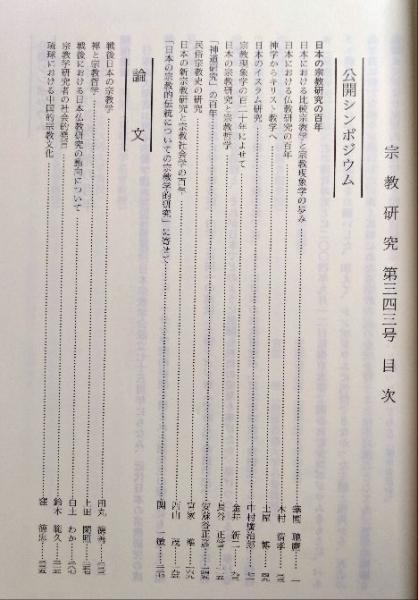 宗教研究 第三四三号 目次
公開シンポジウム
日本の宗教研究の百年
日本における比較宗教学と宗教現象学の歩み 華園 聰麿 一
日本における仏教研究の百年 木村 清孝
神学からキリスト教学へ 土屋 博
日本のイスラム研究 中村廣治郎
宗教現象学の百二十年によせて 金井 新二
日本の宗教研究と宗教哲学 長谷 正當
「神道研究」の百年 安蘇谷正彦
民俗宗教史の研究 宮家 準
日本の新宗教研究と宗教社会学の百年 西山 茂
「日本の宗教的伝統についての宗教学的研究」に寄せて 関 一敏
論文
戦後日本の宗教学 田丸 徳善
禅と宗教哲学 上田 閑照
戦後における日本仏教研究の動向について 白土 わか
宗教学研究者の社会的発言 鈴木 範久
琉球における中国的宗教文化 窪 徳忠